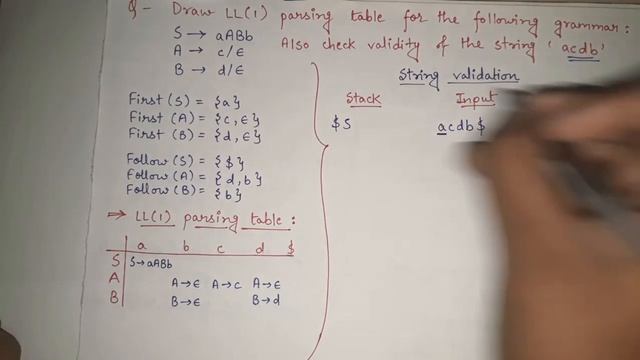 Q- Draw LL(1) parsing table for the following grammar:
S → aABb
A → c/ε
B → d/ε
Also check validity of the string 'acdb'
First(S) = {a}
First(A) = {c, ε}
First(B) = {d, ε}
Follow(S) = {$}
Follow(A) = {d, b}
Follow(B) = {b}
⇒ LL(1) parsing table:
a b c d $
S S→aABb
A A→ε A→c A→ε
B B→ε B→d
String validation
Stack Input
$S acdb$